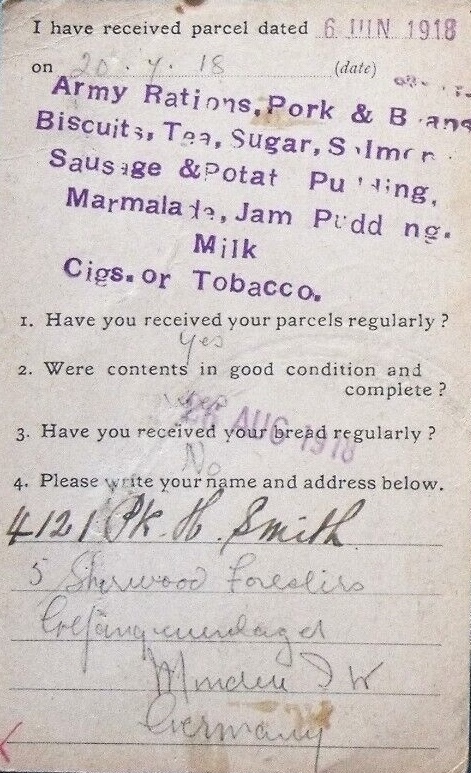 I have received parcel dated 6 JUN 1918
on 20.7.18 (date)
Army Rations, Pork & B ans
Biscuits, Tea, Sugar, S lmon
Sausage & Potat Pu ding,
Marmalade, Jam Pudd ng.
Milk
Cigs. or Tobacco.
1. Have you received your parcels regularly ?
Yes
2. Were contents in good condition and
complete ?
yes
AUG 1918
3. Have you received your bread regularly ?
No
4. Please write your name and address below.
4121 Pk. H. Smith
5 Sherwood Foresters
Minden I W
Germany